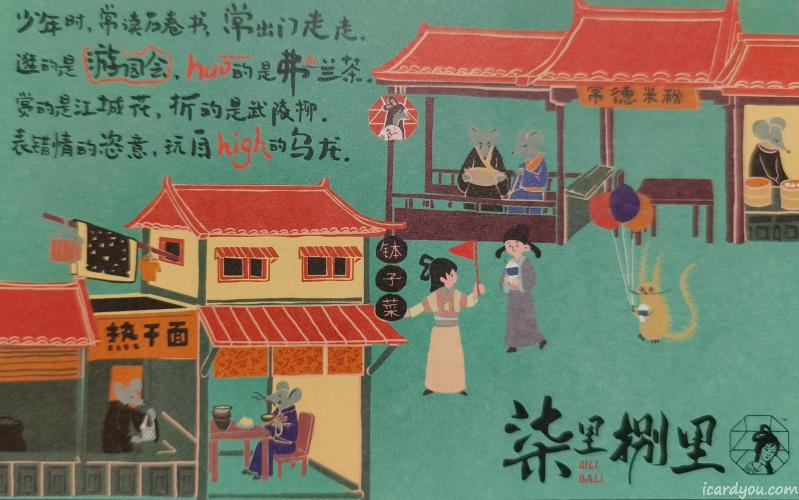 少年时,常读万卷书,常出门走走.
逛的是游园会,huō的是弗兰茶.
赏的是江城花,折的是武陵柳.
表错情的恣意,玩自high的乌龙.
常德米粉
钵子菜
热干面
柒里捌里
QILI
BALI
icardyou.com